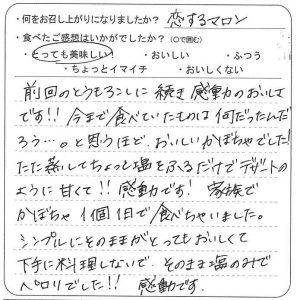 ・何をお召し上がりになりましたか? 恋するマロン
・食べたご感想はいかがでしたか?(○で囲む)
・とっても美味しい ・おいしい ・ふつう
・ちょっとイマイチ ・おいしくない
前回のとうもろこしに続き感動のおいしさ
です!!今まで食べていたものは何だったんだ
ろう…。と思うほど、おいしいかぼちゃでした!
ただ蒸してちょっと塩をふるだけでデザートの
ように甘くて!!感動です!家族で
かぼちゃ1個1日で食べちゃいました。
シンプルにそのままがとってもおいしくて
下手に料理しないで、そのまま塩のみで
ペロリでした!!感動です。